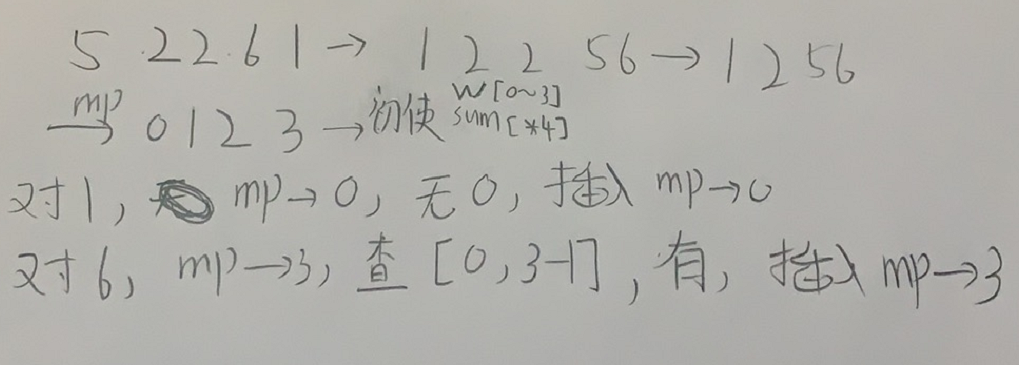 5 22 61 → 1 2 2 56 → 1 2 56
mp→ 0 1 2 3 → 初使 w[0~3] sum[*4]
对1, mp→0, 无0, 插入 mp→0
对6, mp→3, 查 [0,3-1], 有, 插入 mp→3